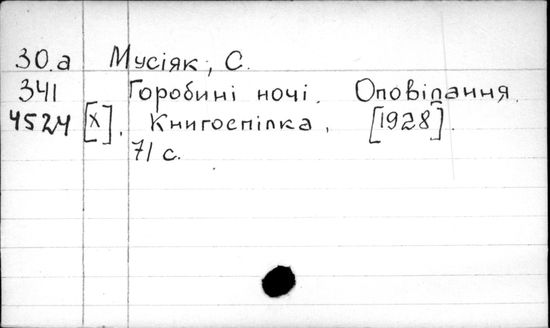 30.a Мусіяк, С.
341 Горобині ночі. Оповідання.
4524 [х]. Книгоспілка, [1928].
71 с.